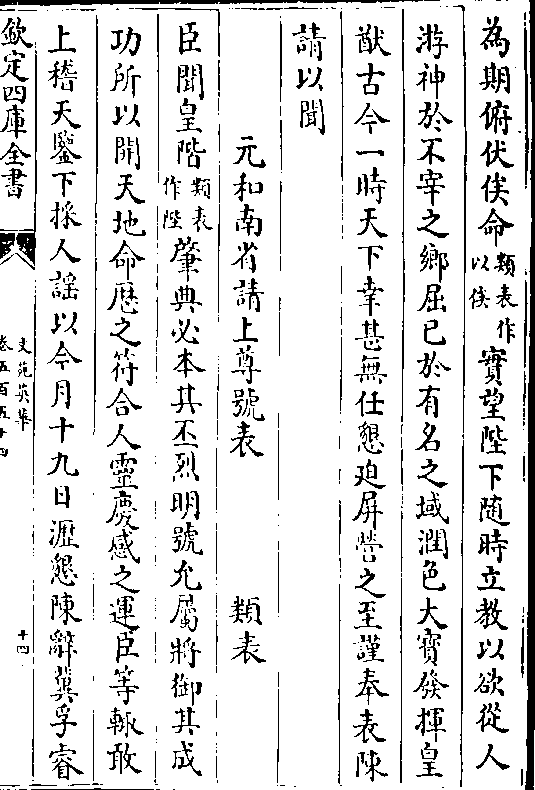 為期俯伏俟命類表作以俟實望陛下隨時立教以欲從人
游神於不宰之鄉屈已於有名之域潤色大寳發揮皇
猷古今一時天下幸甚無任懇廹屏營之至謹奉表陳
請以聞
元和南省請上尊號表 類表
臣聞皇階類表作陛肇典必本其丕烈明號允屬將御其成
功所以開天地命歴之符合人靈慶感之運臣等輙敢
上稽天鑒下採人謡以今月十九日瀝懇陳辭冀孚睿
欽定四庫全書
文苑英華
卷五百五十四
十四